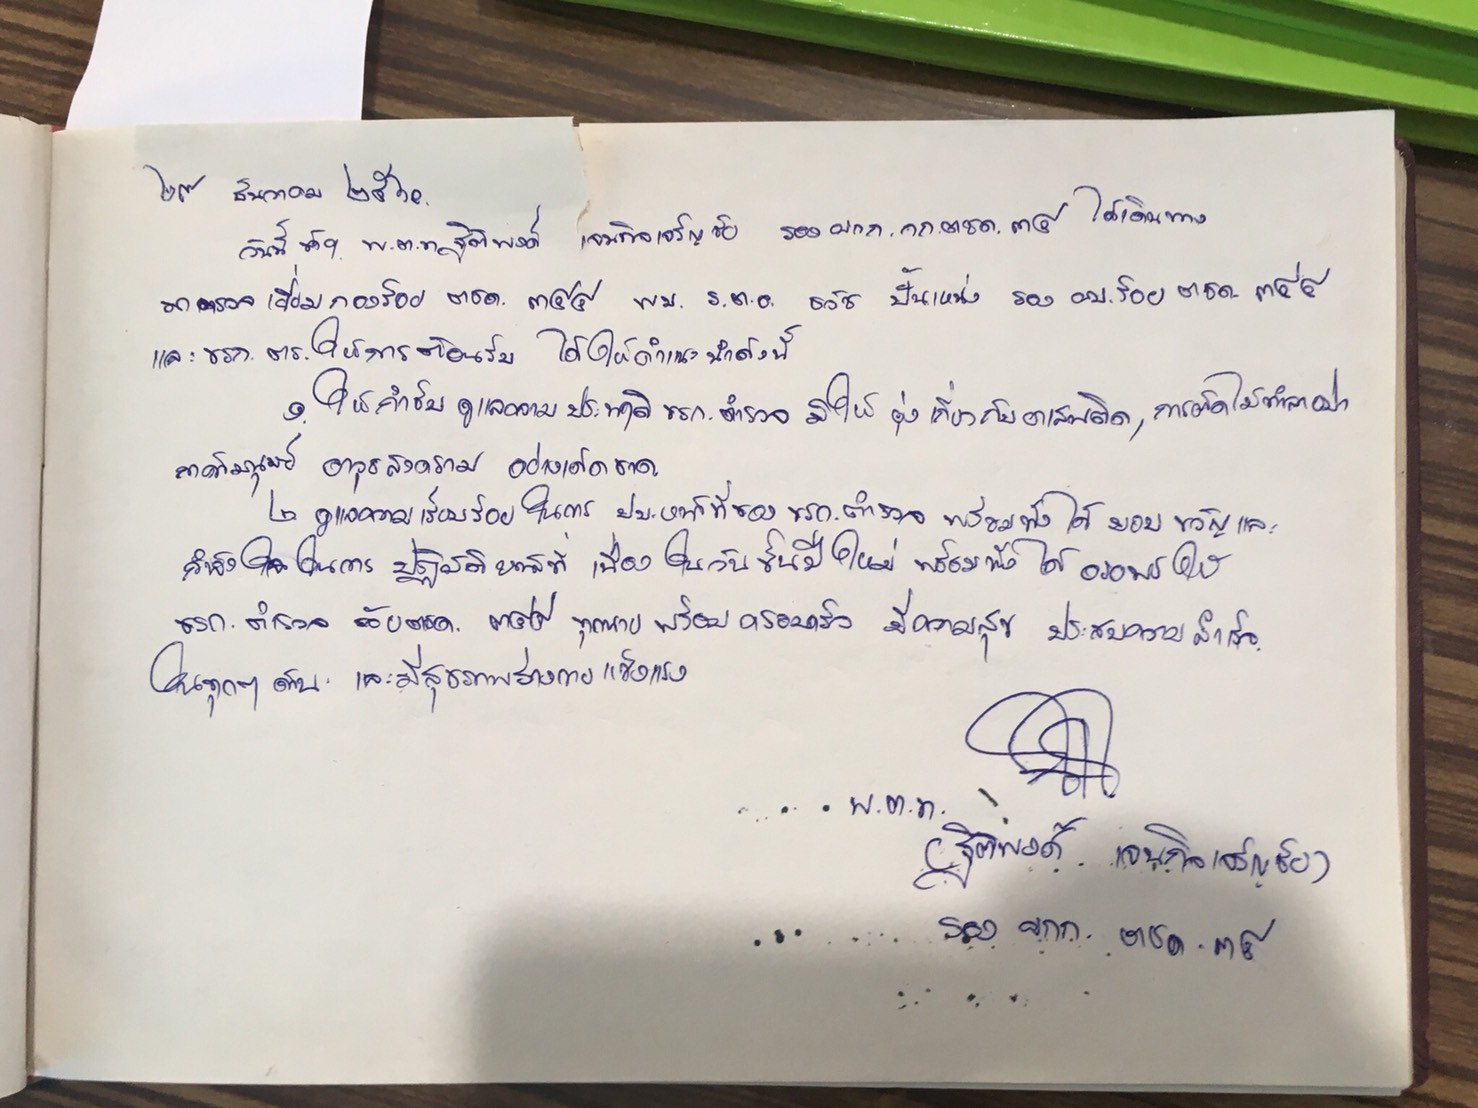 ๒๗ ธันวาคม ๒๕๖๑
วันนี้ ข้าฯ พ.ต.ท.ฐิติพงศ์ เจนกิจเจริญชัย รอง ผกก.กก.ตชด.๓๔ ได้เดินทาง
มาตรวจเยี่ยมกองร้อย ตชด. ๓๔๔ พบ ร.ต.อ. ธวัช ปั้นเหน่ง รอง ผบ.ร้อย ตชด. ๓๔๔
และ ขรก. ตร. ให้การต้อนรับ ได้ให้คำแนะนำดังนี้
๑. ให้กำชับ ดูแลความประพฤติ ขรก.ตำรวจ มิให้ ยุ่งเกี่ยวกับยาเสพติด, การตัดไม้ทำลายป่า
ค้ามนุษย์ อาวุธสงคราม อย่างเด็ดขาด
๒ ดูแลความเรียบร้อย ในการ ปฏิบัติหน้าที่ของ ขรก.ตำรวจ พร้อมทั้งได้ มอบ ขวัญและ
กำลังใจ ในการ ปฏิบัติ หน้าที่ เนื่องในวันขึ้นปีใหม่ พร้อมทั้ง ได้ อวยพรให้
ขรก. ตำรวจ ร้อย ตชด. ๓๔๔ ทุกนาย พร้อมครอบครัว มีความสุข ประสบความสำเร็จ
ในทุกๆ ด้าน และมีสุขภาพร่างกายแข็งแรง
พ.ต.ท.
(ฐิติพงศ์ เจนกิจเจริญชัย)
รอง ผกก. ตชด. ๓๔